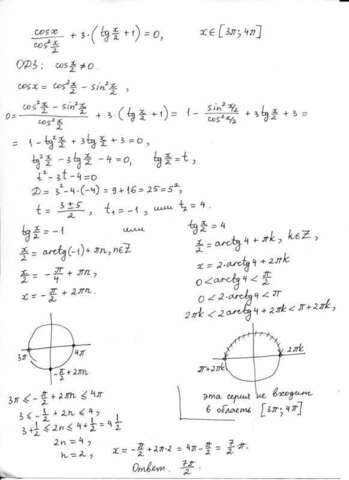 cosx / cos² x/2 + 3·(tg x/2 + 1) = 0, x ∈ [3π; 4π]
ОДЗ: cos x/2 ≠ 0
cosx = cos² x/2 − sin² x/2,
0 = (cos² x/2 − sin² x/2) / cos² x/2 + 3·(tg x/2 + 1) = 1 − sin² x/2 / cos² x/2 + 3tg x/2 + 3 =
= 1 − tg² x/2 + 3tg x/2 + 3 = 0,
tg² x/2 − 3tg x/2 − 4 = 0, tg x/2 = t,
t² − 3t − 4 = 0
D = 3² − 4·(−4) = 9 + 16 = 25 = 5²,
t = (3 ± 5) / 2, t₁ = −1, или t₂ = 4.
tg x/2 = −1 или tg x/2 = 4
x/2 = arctg(−1) + πn, n∈Z
x/2 = −π/4 + πn,
x = −π/2 + 2πn.
x/2 = arctg 4 + πk, k∈Z,
x = 2·arctg 4 + 2πk
0 < arctg 4 < π/2
0 < 2·arctg 4 < π
2πk < 2arctg 4 + 2πk < π + 2πk,
3π 4π
−π/2 + 2πn
π+2πk 2πk
3π ≤ −π/2 + 2πn ≤ 4π
3 ≤ −1/2 + 2n ≤ 4,
3 + 1/2 ≤ 2n ≤ 4 + 1/2 = 4 1/2
2n = 4,
n = 2,
эта серия не входит
в область [3π; 4π]
x = −π/2 + 2π·2 = 4π − π/2 = 7/2 π.
Ответ. 7π/2.